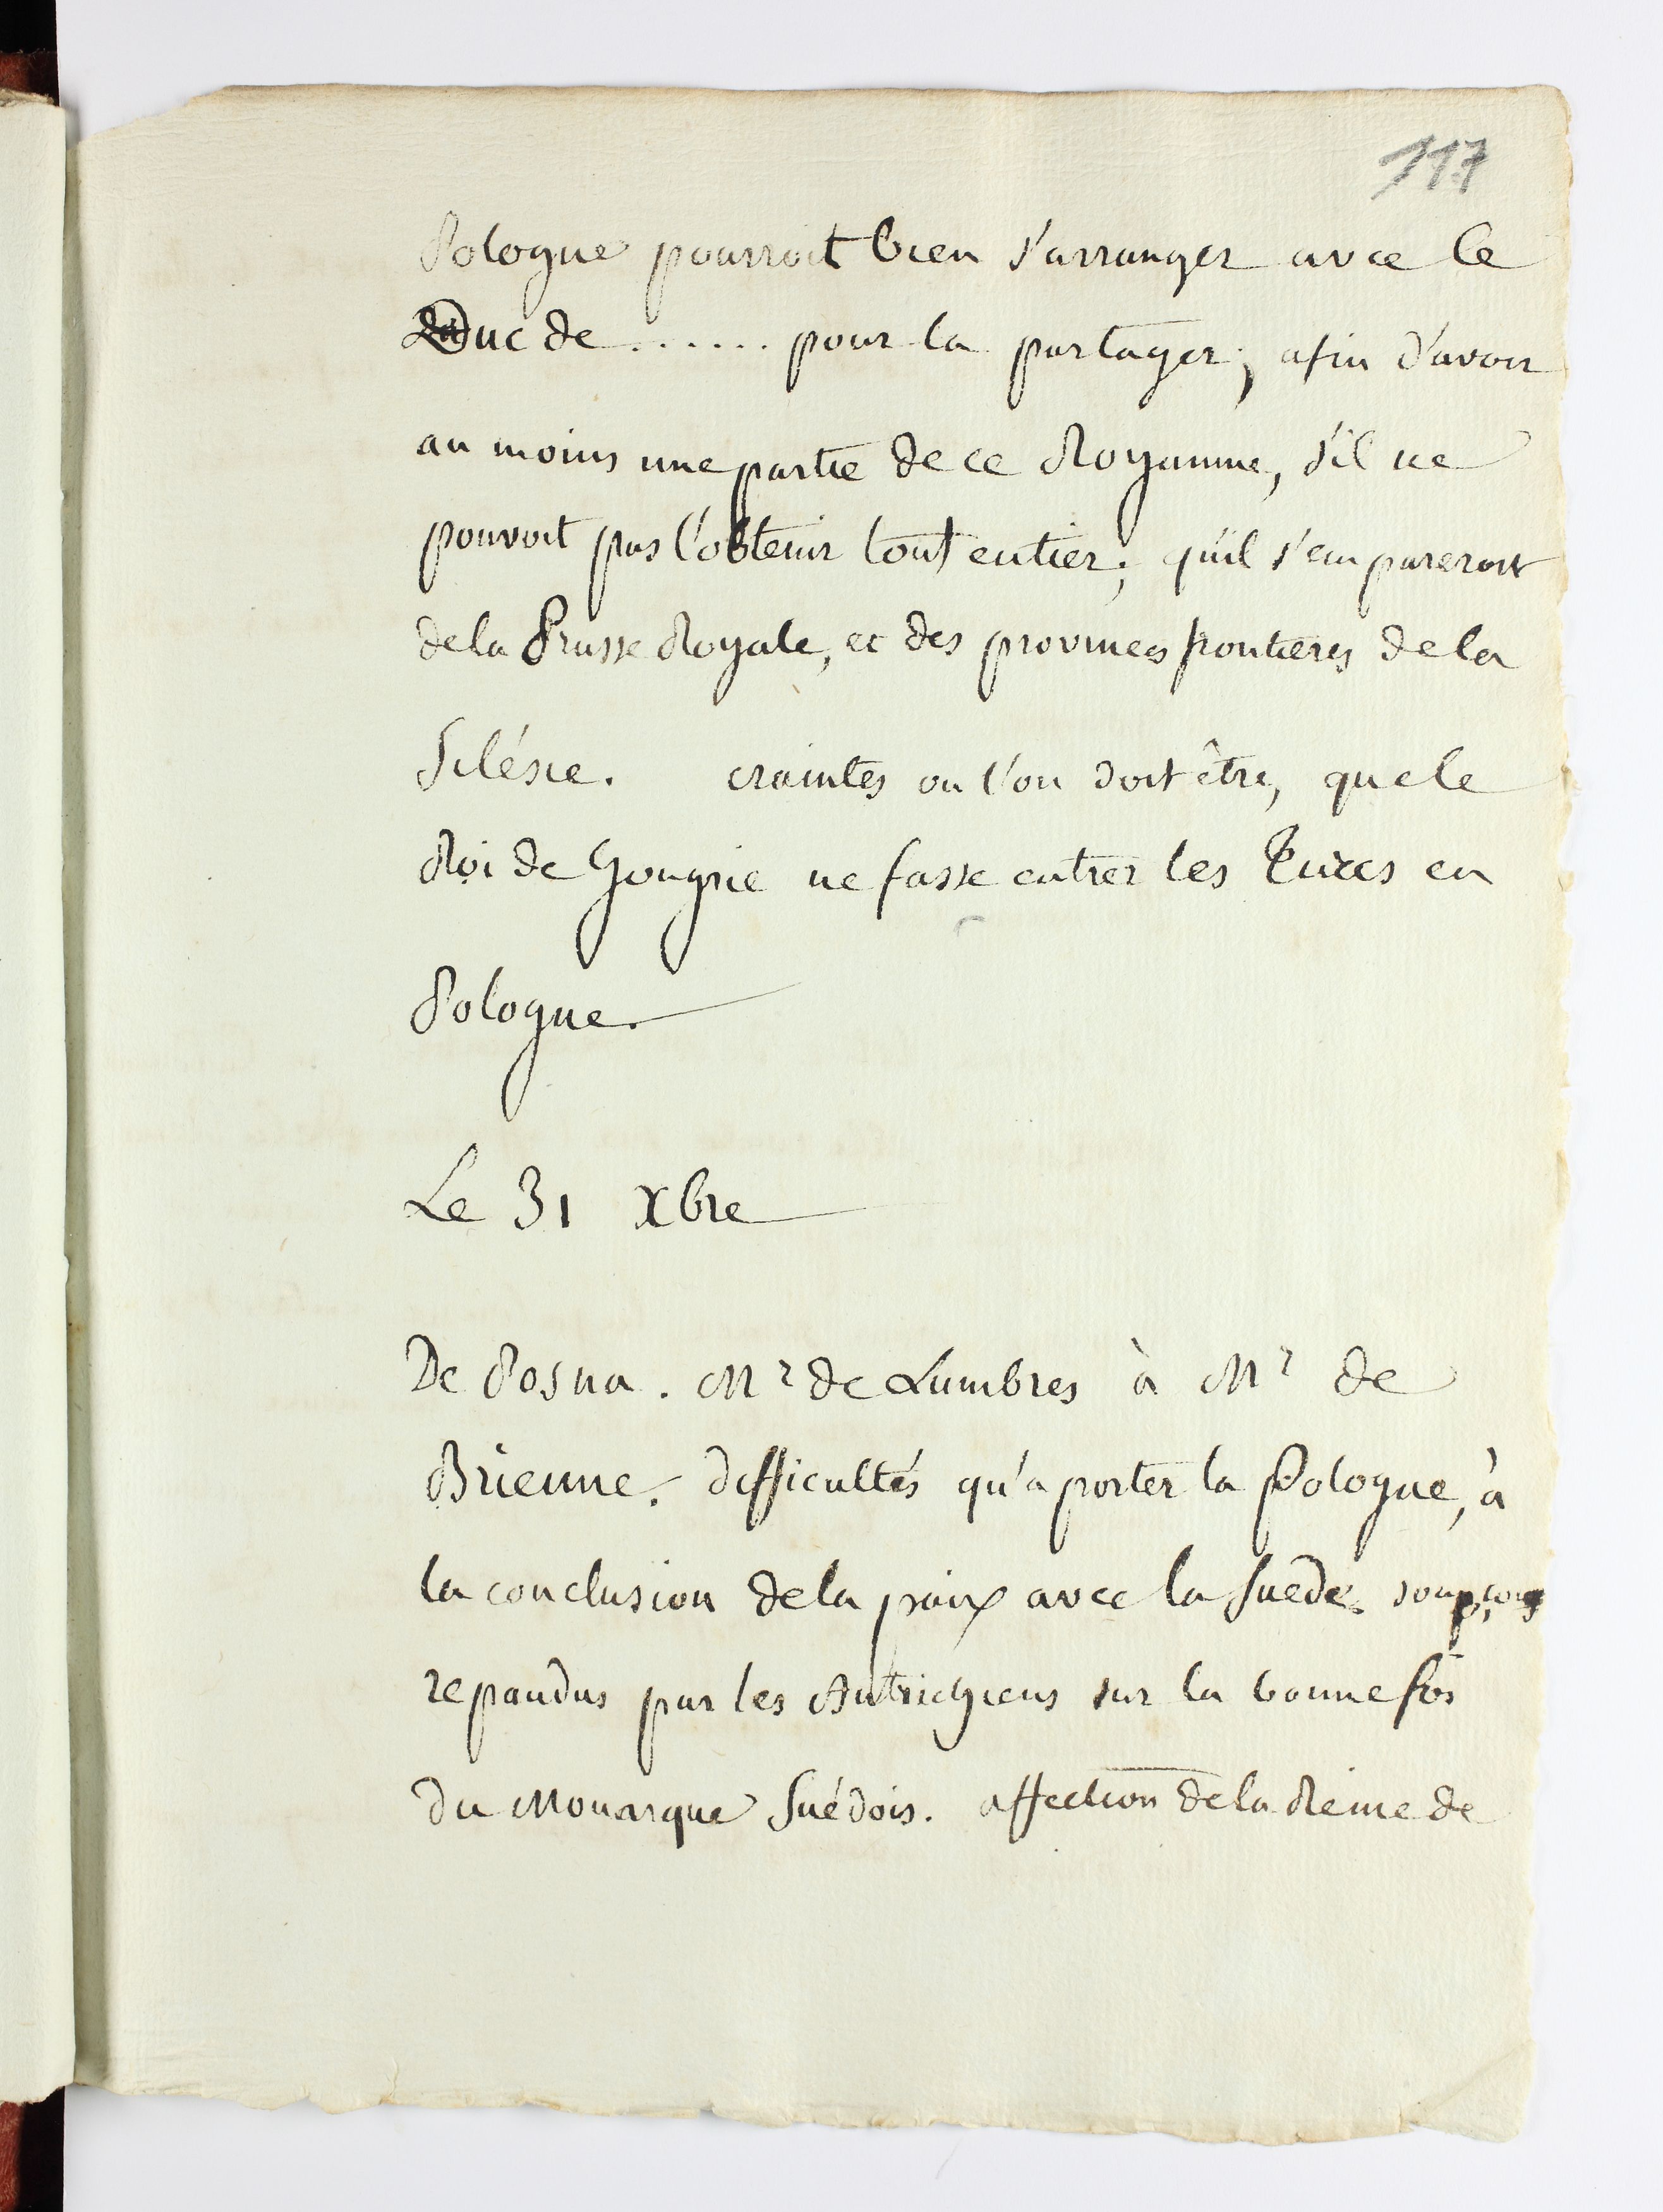 117
Pologne pourroit bien s'arranger avec le
Duc de ...... pour la partager; afin d'avoir
au moins une partie de ce Royaume, s'il ne
pouvoit pas l'obtenir tout entier; qu'il s'empareroit
de la Prusse Royale, et des provinces frontieres de la
Silésie. craintes ou l'on doit être, que le
Roi de hongrie ne fasse entrer les Turcs en
Pologne.
Le 31 Xbre
De Posna. Mr de Lumbres à Mr de
Brienne. difficultés qu'a porter la Pologne, à
la conclusion de la paix avec la Suede. soupçons
repandus par les Autrichiens sur la bonne foi
du Monarque Suédois. affection de la Reine de